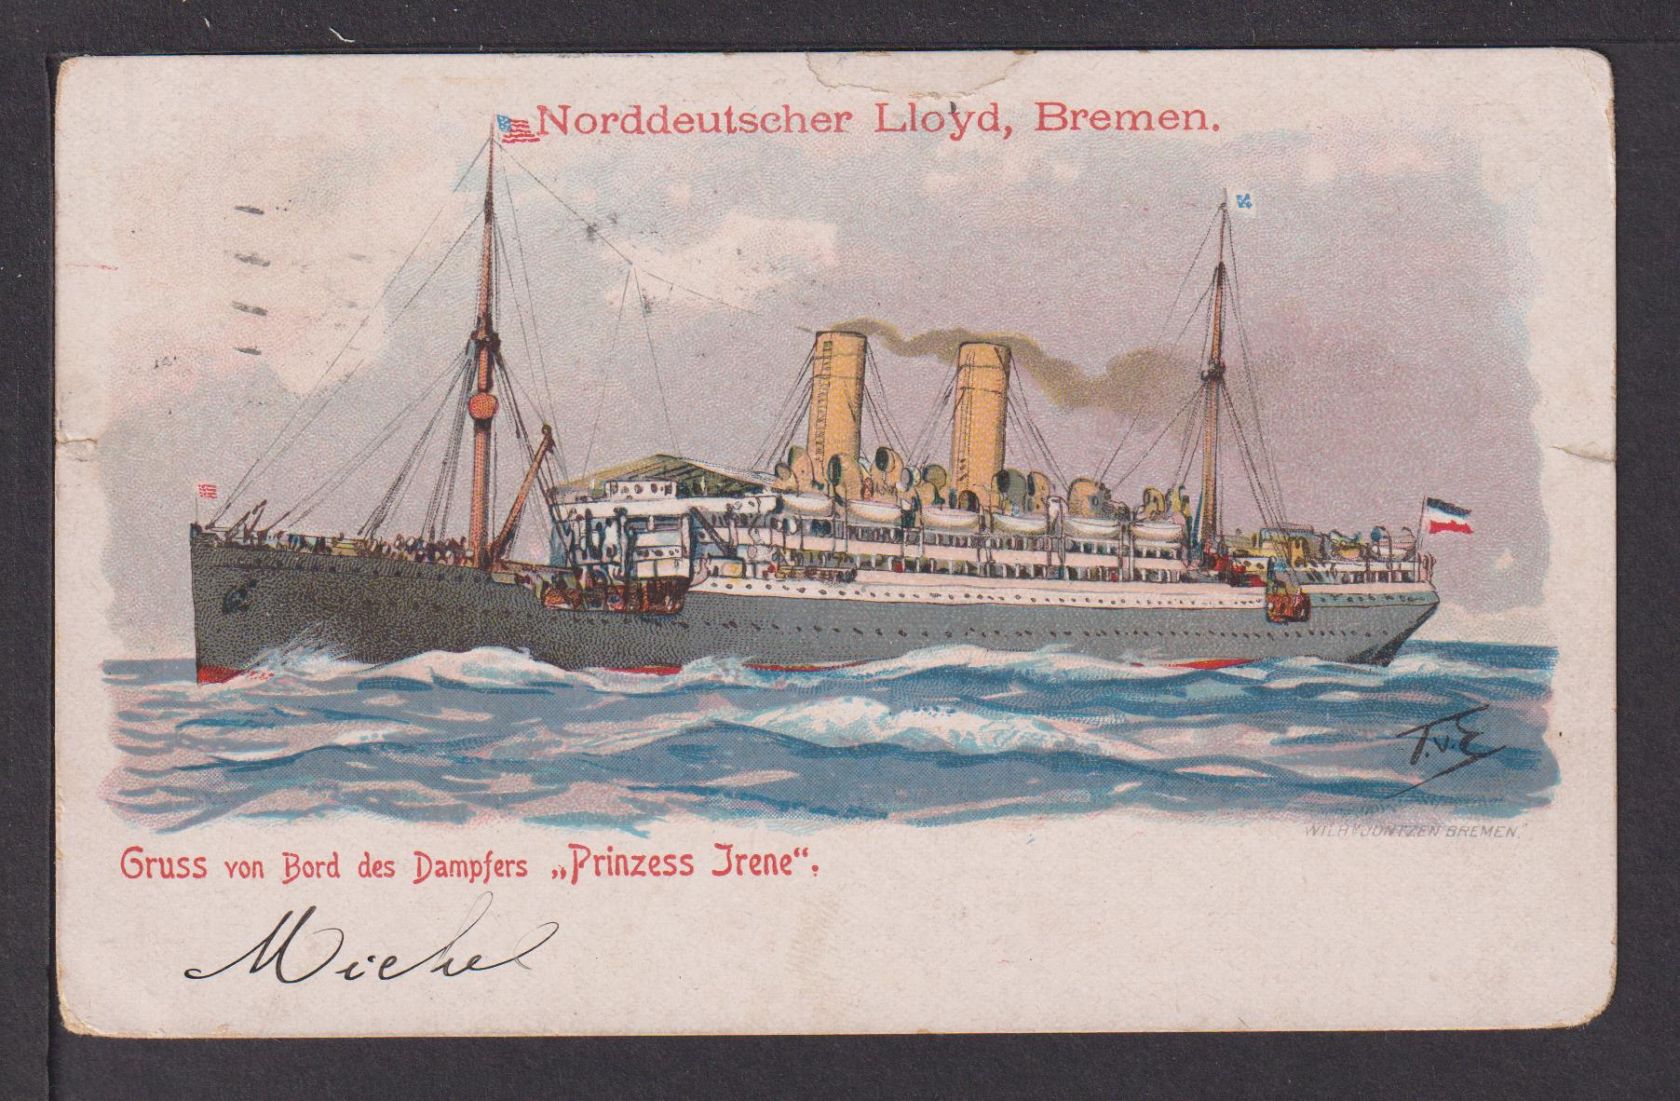 Norddeutscher Lloyd, Bremen.
T.v.E
WILH. JÖNTZEN BREMEN.
Gruss von Bord des Dampfers „Prinzess Irene“.
Michel